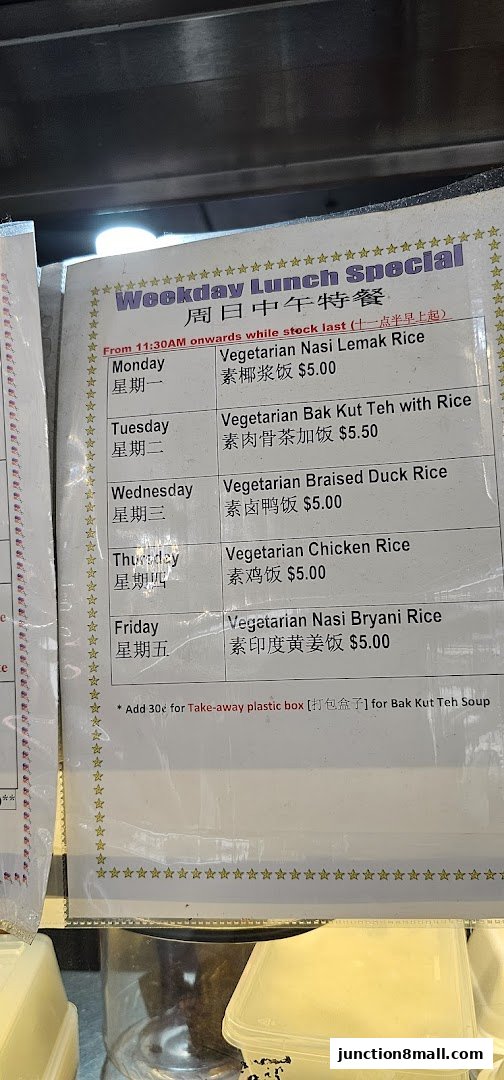 Weekday Lunch Special
周日中午特餐
From 11:30AM onwards while stock last (十一点半早上起)
Monday
星期一
Vegetarian Nasi Lemak Rice
素椰浆饭 $5.00
Tuesday
星期二
Vegetarian Bak Kut Teh with Rice
素肉骨茶加饭 $5.50
Wednesday
星期三
Vegetarian Braised Duck Rice
素卤鸭饭 $5.00
Thursday
星期四
Vegetarian Chicken Rice
素鸡饭 $5.00
Friday
星期五
Vegetarian Nasi Bryani Rice
素印度黄姜饭 $5.00
* Add 30¢ for Take-away plastic box [打包盒子] for Bak Kut Teh Soup
junction8mall.com